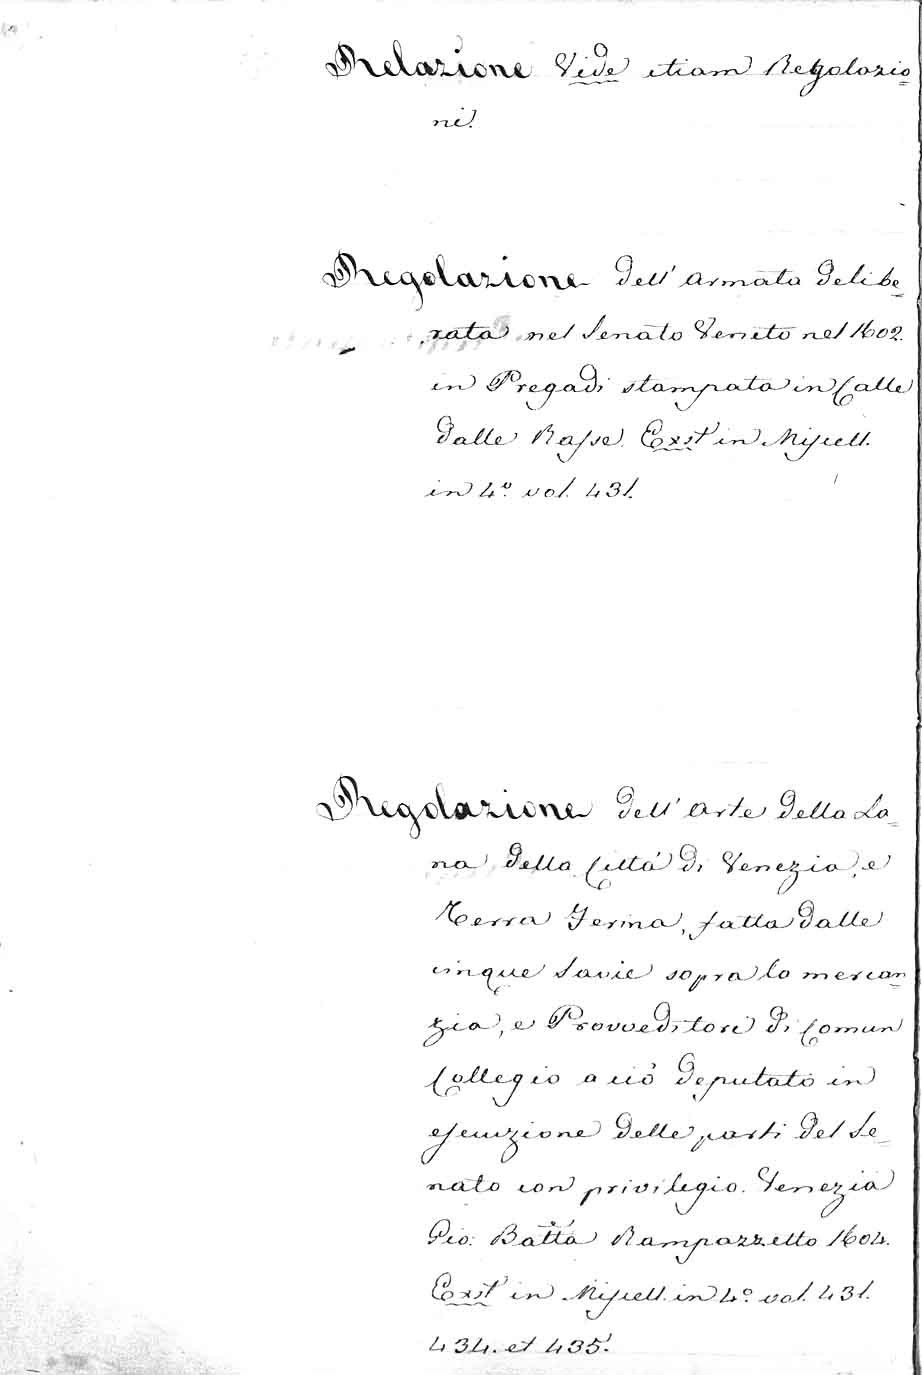 Relazione Vide etiam Regolazio=
ni.
Regolazione dell' Armata delibe=
rata nel Senato Veneto nel 1602.
in Pregadi stampata in Calle
dalle Rasse. Exst in Miscell.
in 4.º vol. 431.
Regolazione dell' Arte della La=
na della Città di Venezia, e
Terra Ferma, fatta dalle
cinque Savie sopra la mercan=
zia, e Provveditori di Comun
Collegio a ciò deputato in
esecuzione delle parti del Se=
nato con privilegio. Venezia
Gio: Batta Rampazzetto 1604.
Exst in Miscell. in 4.º vol. 431.
434. et 435.